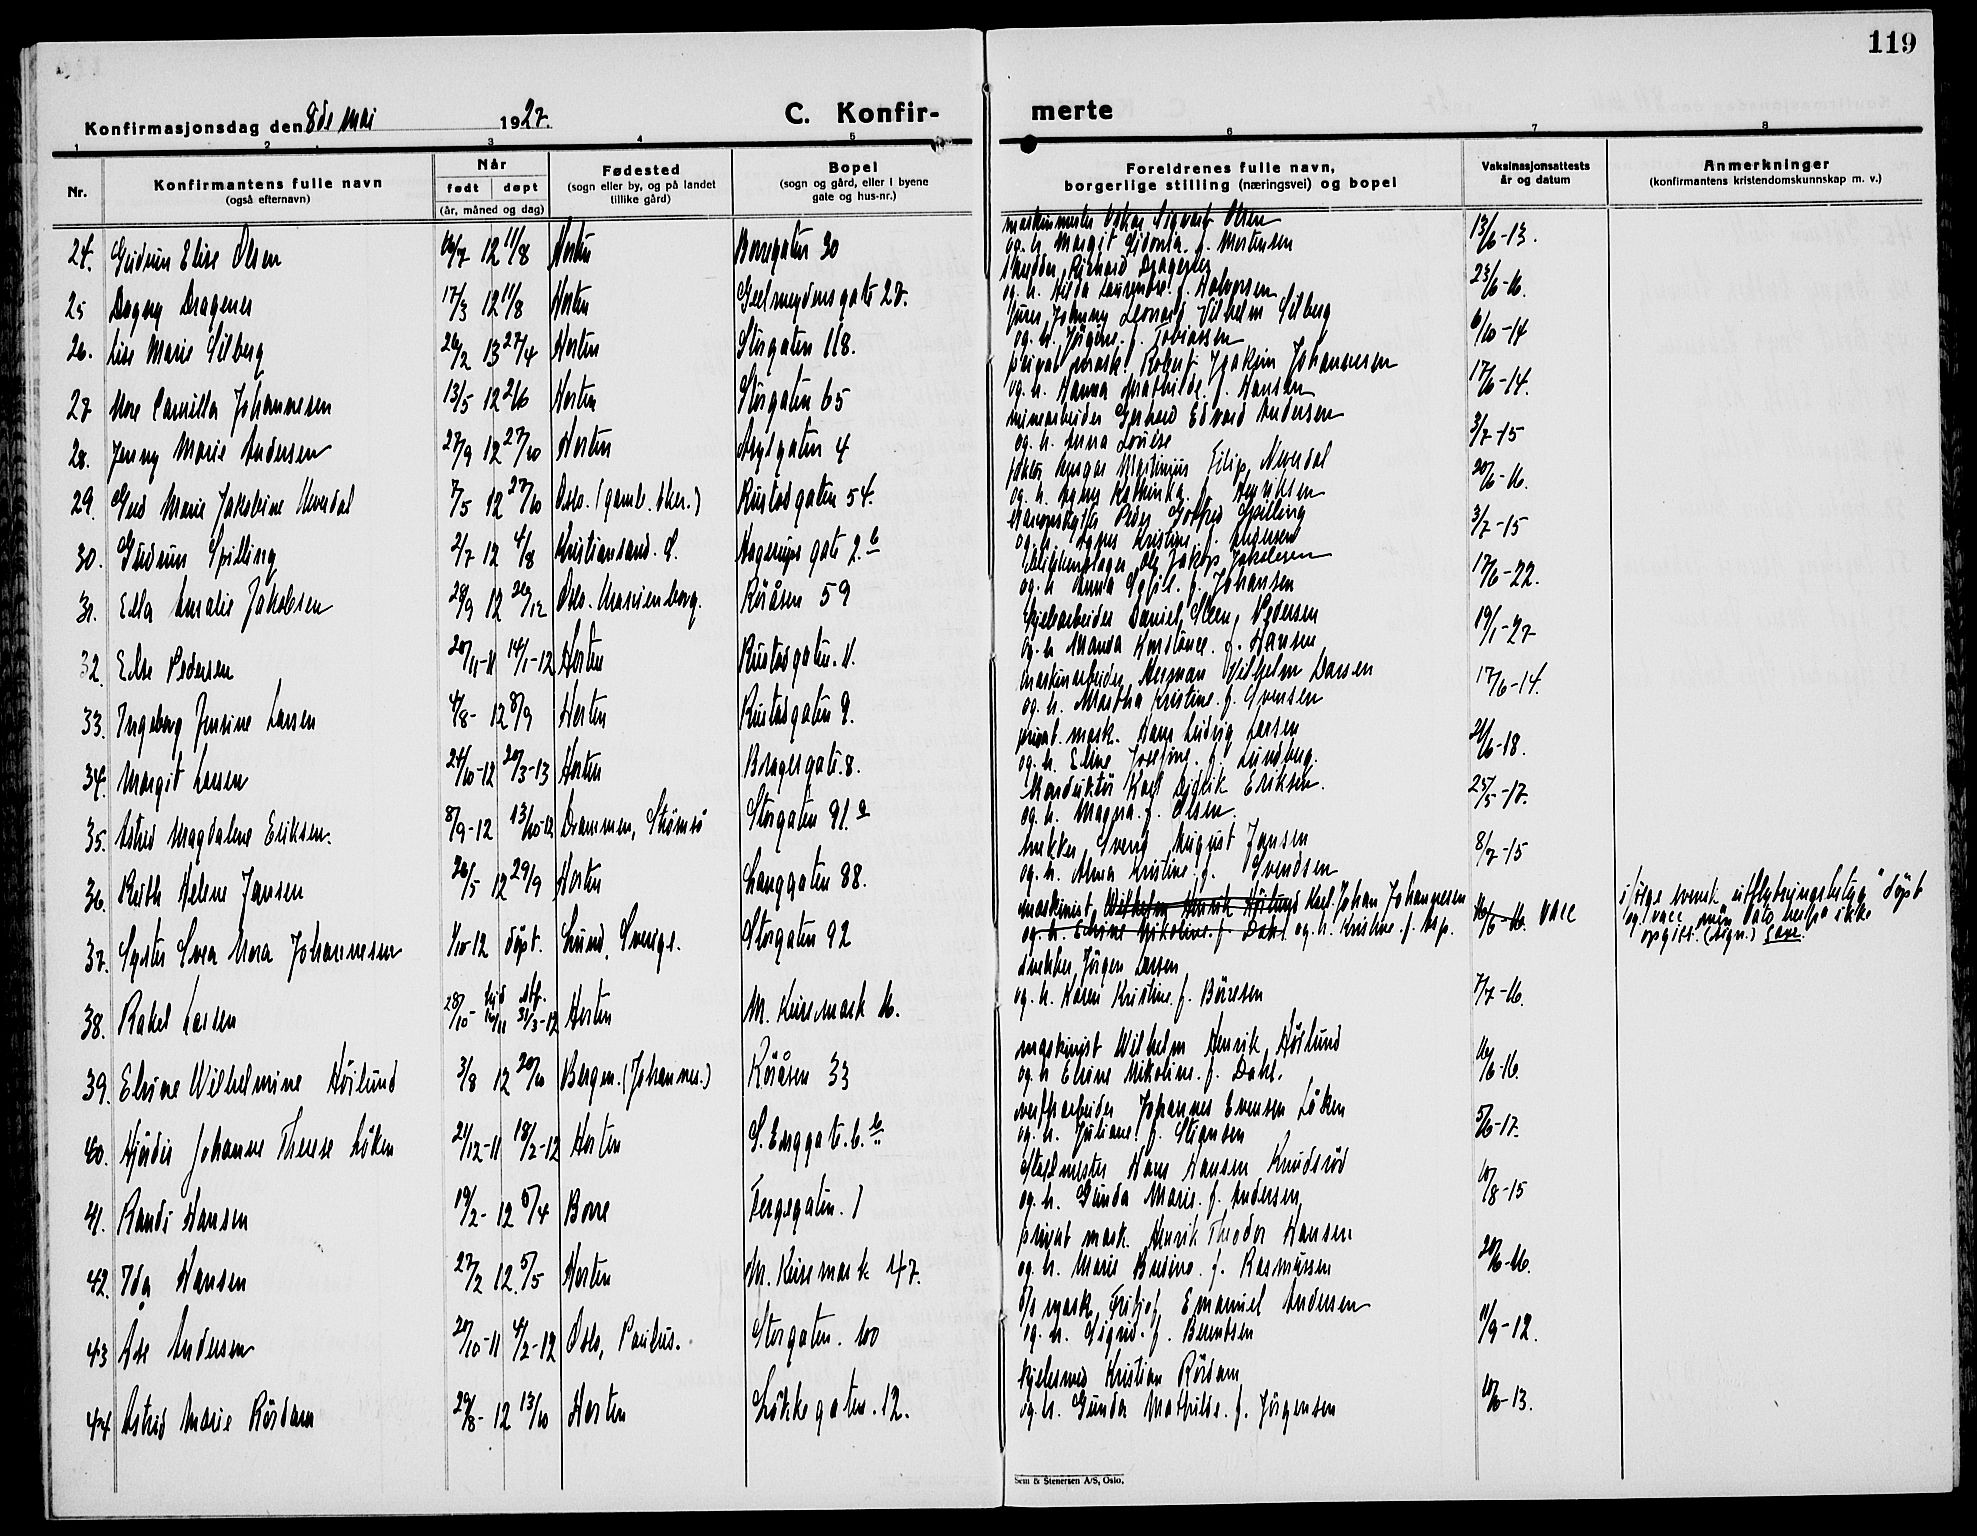 119
Konfirmasjonsdag den 8de mai 1927.
C. Konfir-
merte
1 2 3 4 5 6 7 8
Nr.
Konfirmantens fulle navn
(også efternavn)
Når
født døpt
(år, måned og dag)
Fødested
(sogn eller by, og på landet
tillike gård)
Bopel
(sogn og gård, eller i byene
gate og hus-nr.)
Foreldrenes fulle navn,
borgerlige stilling (næringsvei) og bopel
Vaksinasjonsattests
år og datum
Anmerkninger
(konfirmantens kristendomskunnskap m. v.)
24. Gudrun Elise Olsen 12 11/8 Horten Borregaten 30
maskinmester Oskar Sigvart Olsen 13/6-13.
og h. Margit Sidonia f. Mortensen
25 Dagny Dragenes 17/3 12 11/8 Horten Geelmuydensgate 27.
Rikhard Dragenes 23/6-16.
og. h. Hilda Laurendse f. Halvorsen
26. Lise Marie Silberg 26/2 13 27/4 Horten Storgaten 118.
Johnny Leonard Vilhelm Silberg 6/10-14
og. h. Jørgine f. Tobiassen
27 More Camilla Johannesen 13/5 12 2/6 Horten Storgaten 65
privat mask. Robert Joakim Johannesen 17/6-14.
og. h. Hanna Mathilde f. Hansen
28. Jenny Marie Andersen 27/9 12 27/10 Horten Asylgaten 4
minearbeider Gerhard Edvard Andersen 3/7-15
og. h. Anna Lovise
29. Gerd Marie Jakobine Neverdal 7/5 12 27/10 Oslo. (gamb. Aker.) Rustadgaten 54.
Ansgar Martinius Filip Neverdal 20/6-16.
og. h. Agnes Kathinka f. Henriksen
30. Gudrun Spilling 2/7 12 4/8 Kristiansand. S. Hagerups gate 2.b
Peder Gotfred Spilling 3/7-15
og. h. Agnes Kristine f. Andersen
31. Edla Amalie Jakobsen 28/9 12 26/12 Oslo. Marienborg. Röråsen 59
Blikkenslager Ole Jakop Jakobsen 17/6-22.
og. h Anna Sofie. f. Johansen
32. Else Pedersen 20/11-11 14/1-12 Horten Rustadgaten. 11.
Kjelarbeider Daniel Steen Pedersen 19/1-27
og. h Manda Konstance. f. Hansen
33. Ingeborg Jensine Larsen 4/8- 12 8/9 Horten Rustadgaten 9.
Maskinarbeider Herman Vilhelm Larsen 17/6-14.
og. h. Martha Kristine. f. Svensen
34. Margit Larsen 24/10-12 20/3-13 Horten Bragesgate. 8.
privat. mask. Hans Ludvig Larsen 21/6-18.
og. h. Eline Josefine. f. Lundberg.
35. Astrid Magdalene Eriksen. 8/9-12 13/10-12 Drammen, Strømsø Storgaten 91.a
Konduktör Karl Didrik Eriksen. 25/5-17.
og. h. Magna. f. Olsen.
36. Ruth Helene Jansen 26/5 12 29/9 Horten Langgaten 88.
snekker Svend August Jansen 8/7-15
og. h. Alma Kristine. f. Svendsen
37. Syster Svea Nora Johannesen 1/10-12 döpt. Lund, Sverige. Storgaten 92
maskinist Wilhelm Henrik Höilund Karl Johan Johannesen 16/6-16. vacc
og. h. Elvine Nikoline. f. Dahl og. h. Kristine. f. Asp.
ifølge svensk utflytningsbetyg" döpt
og vacc men dato herpå ikke
opgitt. (sign.)
38. Rakel Larsen 28/10- 10/11 31/3-12 Horten M. Keisemark 16.
snekker Jörgen Larsen 7/7-16.
og. h. Karen Kristine. f. Börresen
39. Elvine Wilhelmine Höilund 3/8 12 20/10 Bergen. (Johannes.) Röråsen 33
maskinist Wilhelm Henrik Höilund 16/6-16.
og. h Elvine Nikoline. f. Dahl.
40. Hjördis Johanne Therese Löken 21/12-11 18/2-12 Horten S. Enggate. 6.b
verftarbeider Johannes Evensen Löken 5/6-17.
og. h. Juliane f. Stiansen
41. Randi Hansen 19/2- 12 5/4 Borre Fergegaten. 1
Hans Hansen Knudsröd 10/8-15
og. h. Gunda Marie. f. Andersen
42. Ida Hansen 27/2 12. 5/5 Horten M. Keisemark 47.
privat mask. Henrik Theodor Hansen 20/6-16.
og. h. Marie Bredine. f. Rasmussen
43 Åse Andersen 20/10-11 4/2-12 Oslo, Paulus. Storgaten. 100
mask. Fritjof Emanuel Andersen 11/9-12.
og. h. Sigrid. f. Berentsen
44 Astrid Marie Rördam 29/8- 12 13/10 Horten Løkkegaten. 12.
kjelesmed Kristian Rördam 10/6-13.
og. h. Gunda Mathilde. f. Jörgensen
Sem & Stenersen A/S, Oslo.